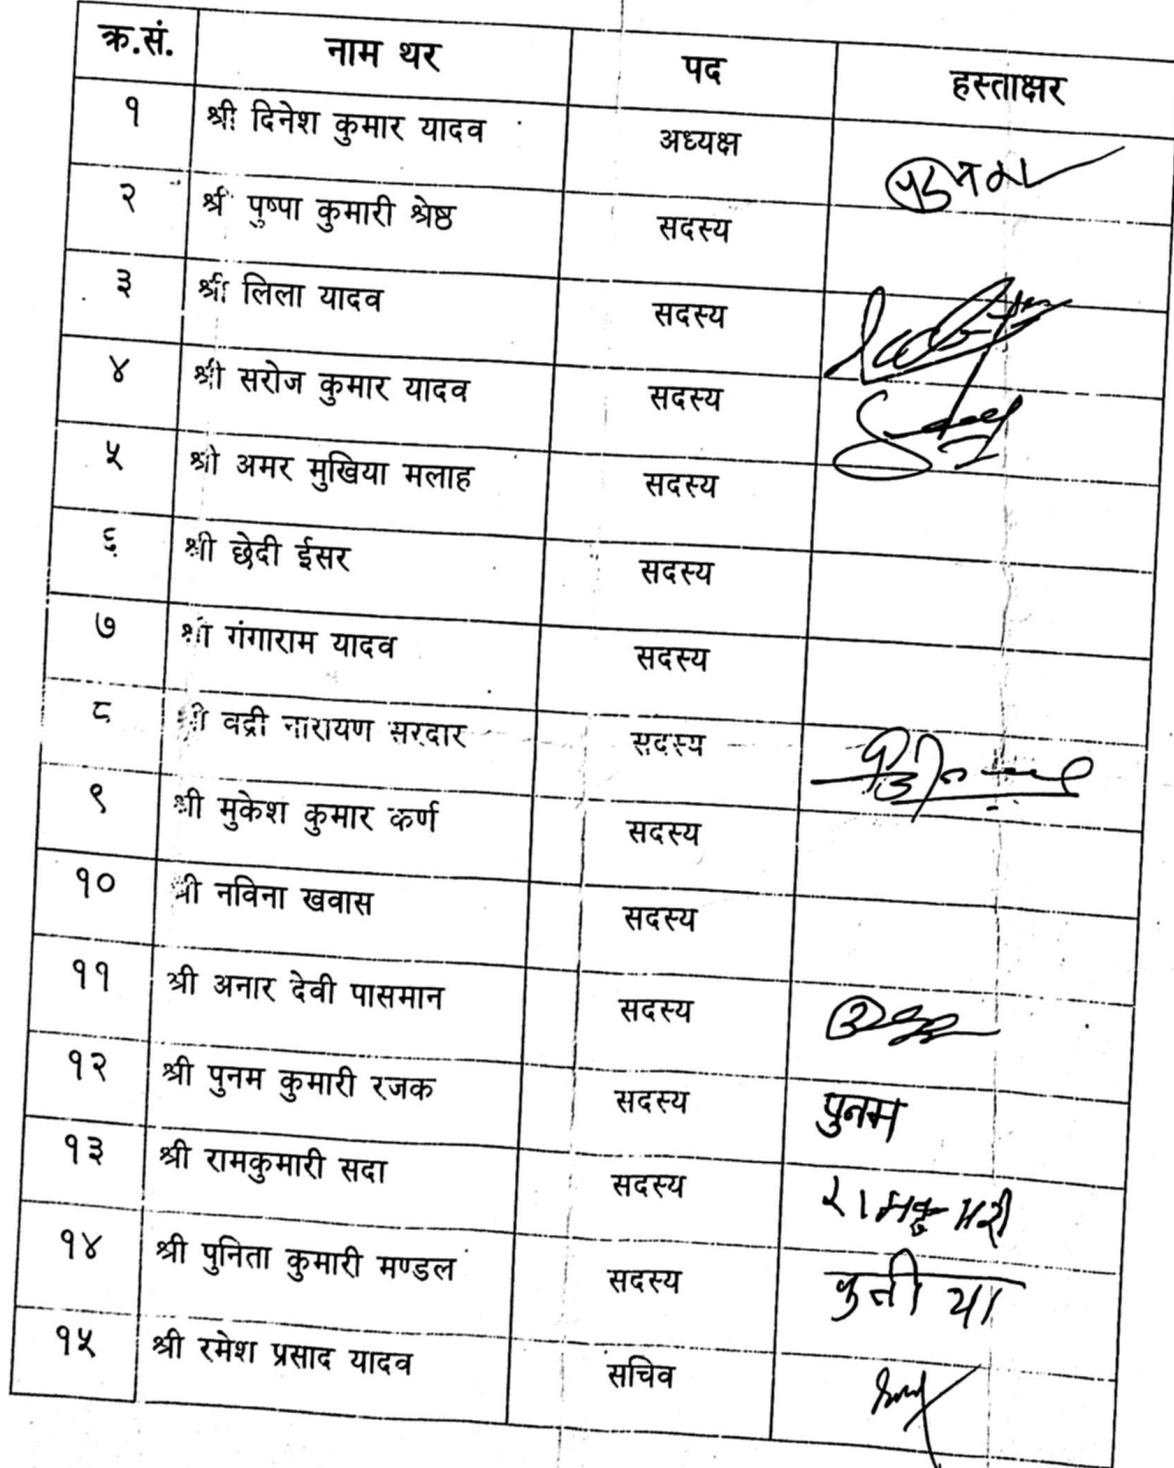 क्र.सं. नाम थर पद हस्ताक्षर
१ श्री दिनेश कुमार यादव अध्यक्ष
२ श्री पुष्पा कुमारी श्रेष्ठ सदस्य
३ श्री लिला यादव सदस्य
४ श्री सरोज कुमार यादव सदस्य
५ श्री अमर मुखिया मलाह सदस्य
६ श्री छेदी ईसर सदस्य
७ श्री गंगाराम यादव सदस्य
८ श्री वद्री नारायण सरदार सदस्य
९ श्री मुकेश कुमार कर्ण सदस्य
१० श्री नविना खवास सदस्य
११ श्री अनार देवी पासमान सदस्य
१२ श्री पुनम कुमारी रजक सदस्य पुनम
१३ श्री रामकुमारी सदा सदस्य
१४ श्री पुनिता कुमारी मण्डल सदस्य
१५ श्री रमेश प्रसाद यादव सचिव